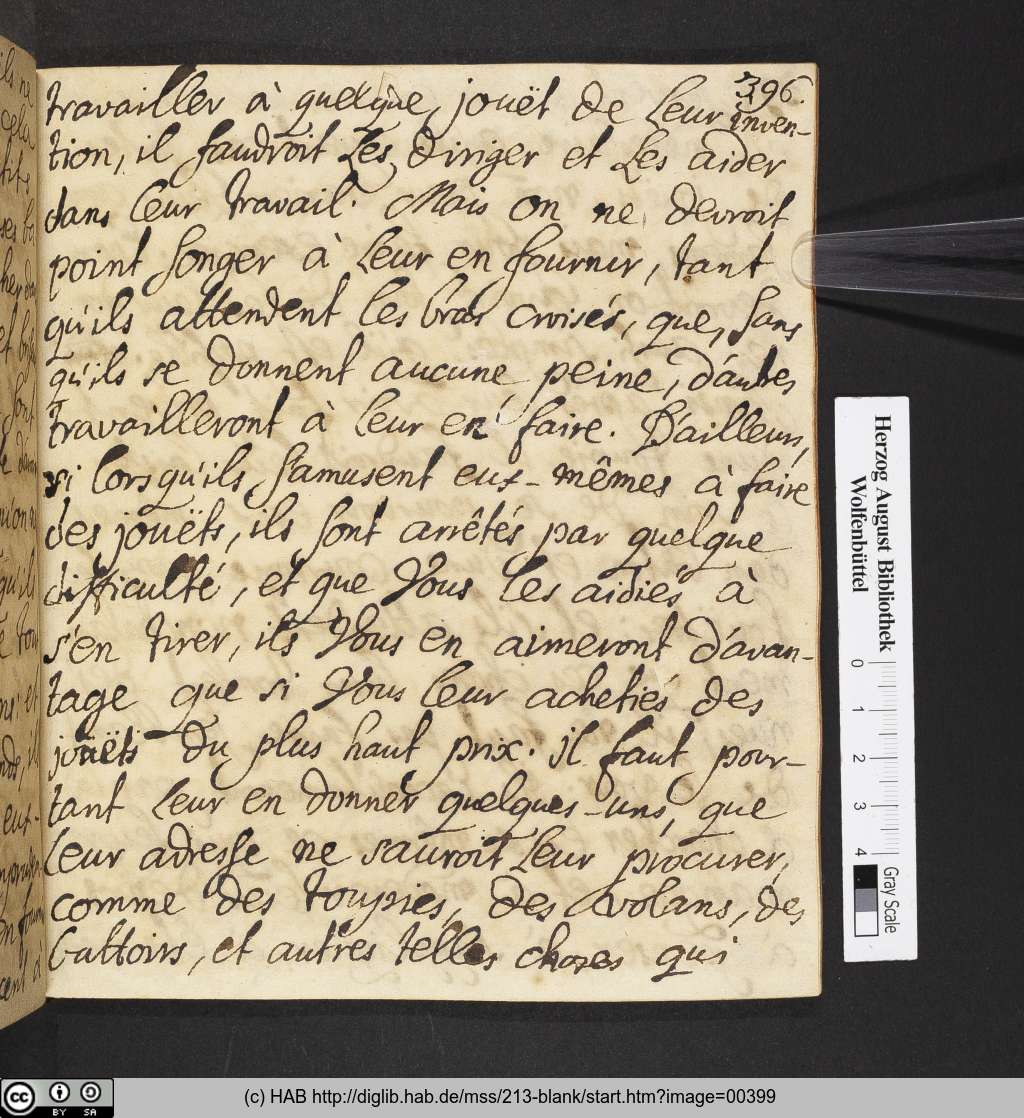 396.
travailler à quelque jouët de leur inven-
tion, il faudroit les diriger et les aider
dans leur travail. Mais on ne devroit
point songer à leur en fournir, tant
qu'ils attendent les bras croisés, que, sans
qu'ils se donnent aucune peine, d'autres
travailleront à leur en faire. D'ailleurs,
si lorsqu'ils s'amusent eux-mêmes à faire
des jouëts, ils sont arrêtés par quelque
difficulté, et que Vous les aidiés à
s'en tirer, ils Vous en aimeront d'avan-
tage que si Vous leur achetiés des
jouëts du plus haut prix. il faut pour-
tant leur en donner quelques-uns, que
leur adresse ne sauroit leur procurer,
comme des toupies, des volans, des
battoirs, et autres telles choses qui
Herzog August Bibliothek
Wolfenbüttel
0 1 2 3 4
Gray Scale
cc BY SA
(c) HAB http://diglib.hab.de/mss/213-blank/start.htm?image=00399